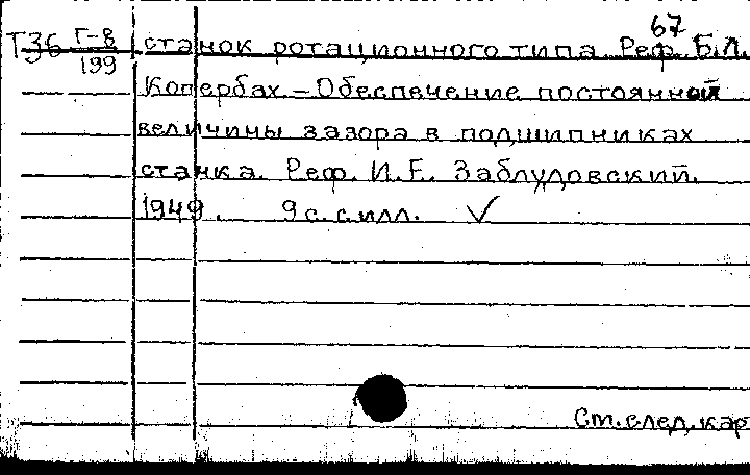 67
Т36 Г-В/199 станок ротационного типа. Реф. Б.Л.
Копербах – Обеспечение постоянной
величины зазора в подшипниках
станка. Реф. И.Е. Заблудовский.
1949. 9 с. с илл. ✓
См. след. кар